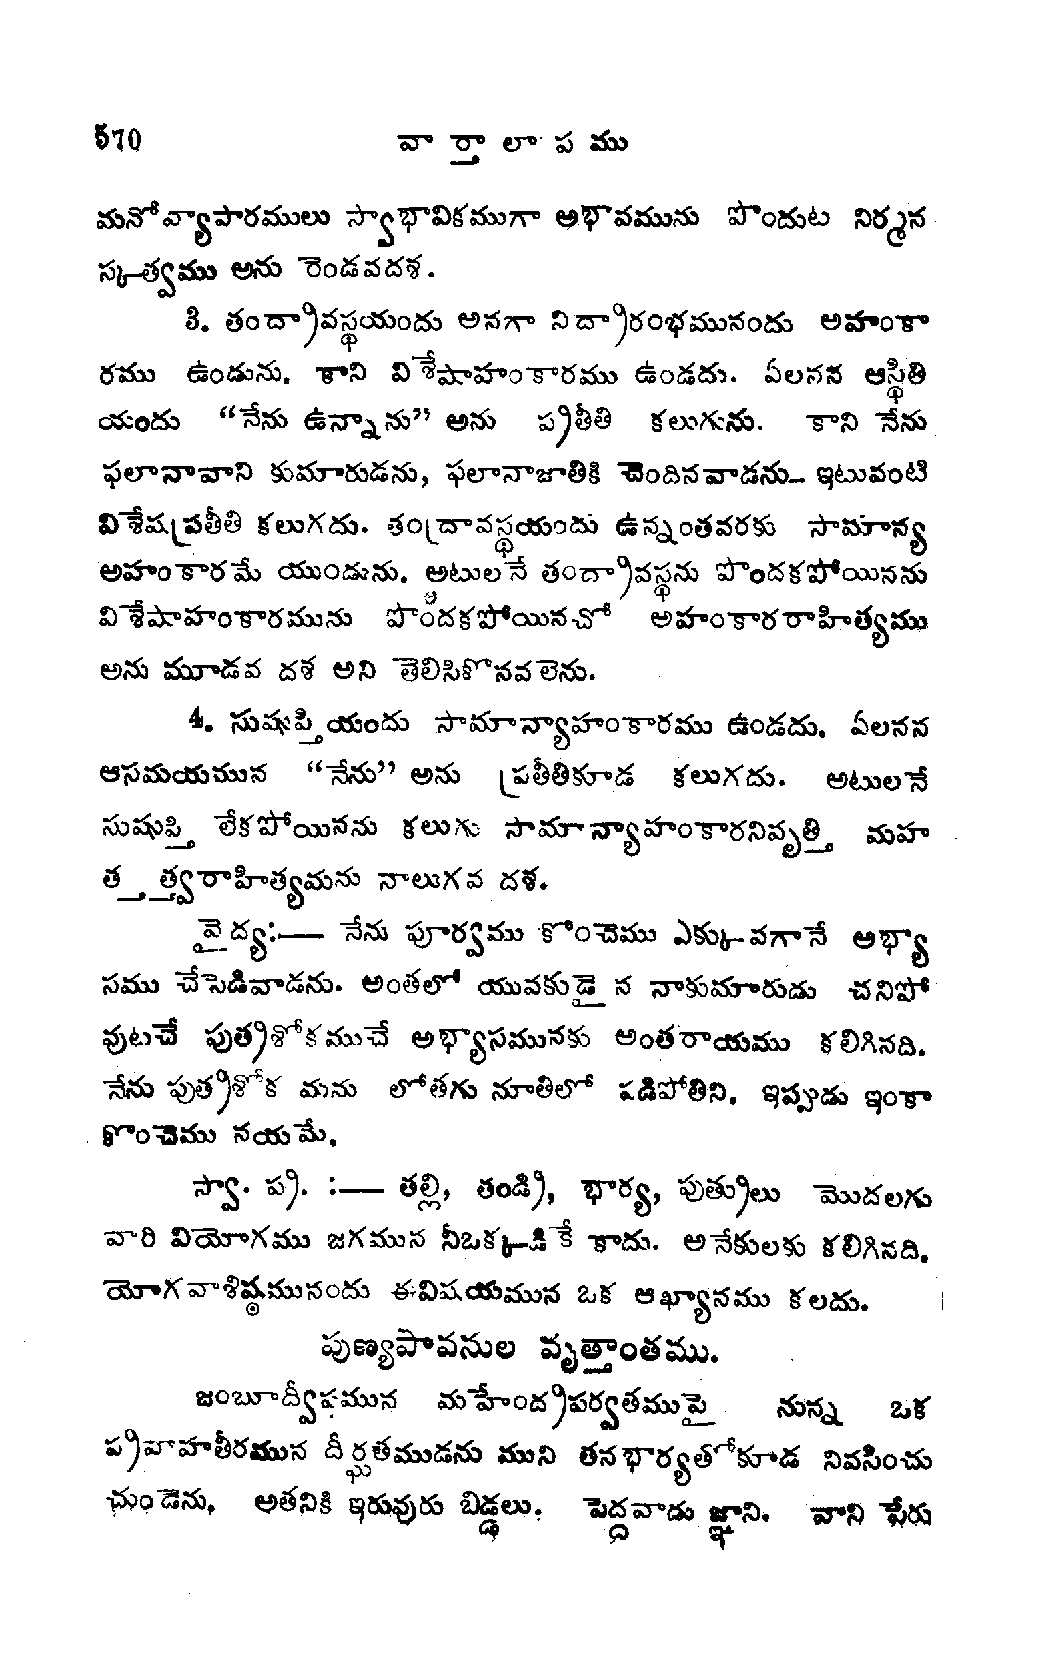 570 వా ర్తా లా ప ము
మనోవ్యాపారములు స్వాభావికముగా అభావమును పొందుట నిర్మన
స్కత్వము అను రెండవదశ.
3. తంద్రావస్థయందు అనగా నిద్రారంభమునందు అహంకా
రము ఉండును. కాని విశేషాహంకారము ఉండదు. ఏలనన ఆస్థితి
యందు “నేను ఉన్నాను” అను ప్రతీతి కలుగును. కాని నేను
ఫలానావాని కుమారుడను, ఫలానాజాతికి చెందినవాడను- ఇటువంటి
విశేషప్రతీతి కలుగదు. తంద్రావస్థయందు ఉన్నంతవరకు సామాన్య
అహంకారమే యుండును. అట్లులనే తంద్రావస్థను పొందకపోయినను
విశేషాహంకారమును పొందకపోయినచో అహంకారరాహిత్యము
అను మూడవ దశ అని తెలిసికొనవలెను.
4. సుషుప్తియందు సామాన్యాహంకారము ఉండదు. ఏలనన
ఆసమయమున “నేను” అను ప్రతీతికూడ కలుగదు. అటులనే
సుషుప్తి లేకపోయినను కలుగు సామాన్యాహంకారనివృత్తి మహ
త త్త్వరాహిత్యమను నాలుగవ దశ.
వైద్య:— నేను పూర్వము కొంచెము ఎక్కువగానే అభ్యా
సము చేసెడివాడను. అంతలో యువకుడై న నాకుమారుడు చనిపో
వుటచే పుత్రశోకముచే అభ్యాసమునకు అంతరాయము కలిగినది.
నేను పుత్రశోక మను లోతగు నూతిలో పడిపోతిని. ఇప్పుడు ఇంకా
కొంచెము నయమే.
స్వా. ప్ర. :— తల్లి, తండ్రి, భార్య, పుత్రులు మొదలగు
వారి వియోగము జగమున నీఒక్కడికే కాదు. అనేకులకు కలిగినది.
యోగవాశిష్ఠమునందు ఈవిషయమున ఒక ఆఖ్యానము కలదు.
పుణ్యపావనుల వృత్తాంతము.
జంబూద్వీపమున మహేంద్రపర్వతముపై నున్న ఒక
ప్రవాహతీరమున దీర్ఘతముడను ముని తనభార్యతోకూడ నివసించు
చుండెను, అతనికి ఇరువురు బిడ్డలు. పెద్దవాడు జ్ఞాని. వాని పేరు